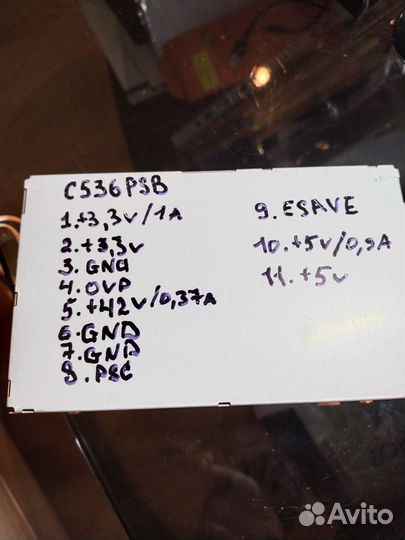 C536PSB
1.+3,3v/1A
2.+3,3v
3.GND
4.OVP
5.+42v/0,37A
6.GND
7.GND
8.PSC
9.ESAVE
10.+5v/0,9A
11.+5v
Avito